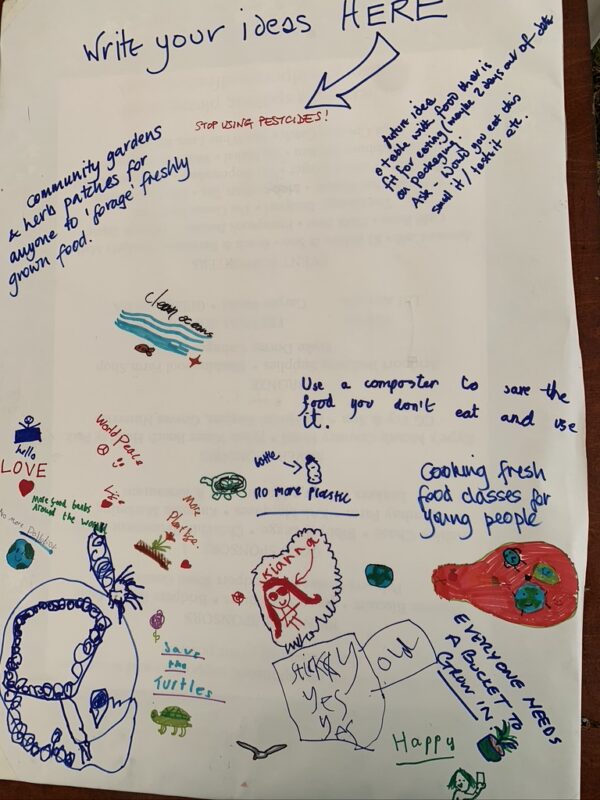 Write your ideas HERE
STOP USING PESTCIDES!
Future idea
a table with food that is
fit for eating (maybe 2 days out of date
on packaging)
Ask - Would you eat this
smell it / taste it etc.
Community gardens
& herb patches for
anyone to 'forage' freshly
grown food.
clean oceans
Use a composter to save the
food you don't eat and use
it.
hello
LOVE
World Peace
More food banks
Around the world
No more
More
bottle
No more plastic
Cooking fresh
food classes for
young people
rianna
Save
the
Turtles
YES
old
EVERYONE NEEDS
A BUCKET TO
GROW IN
Happy